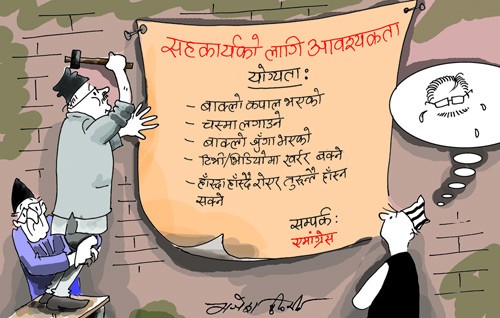 सहकार्यको लागि आवश्यकता
योग्यता:
- बाक्लो कपाल भएको
- चस्मा लगाउने
- बाक्लो जुँगा भएको
- टिभी/भिडियोमा खर्रर बक्ने
- हाँस्दा हाँस्दै रोएर तुरुन्तै हाँस्न
सक्ने
सम्पर्क:
एमांग्रेस